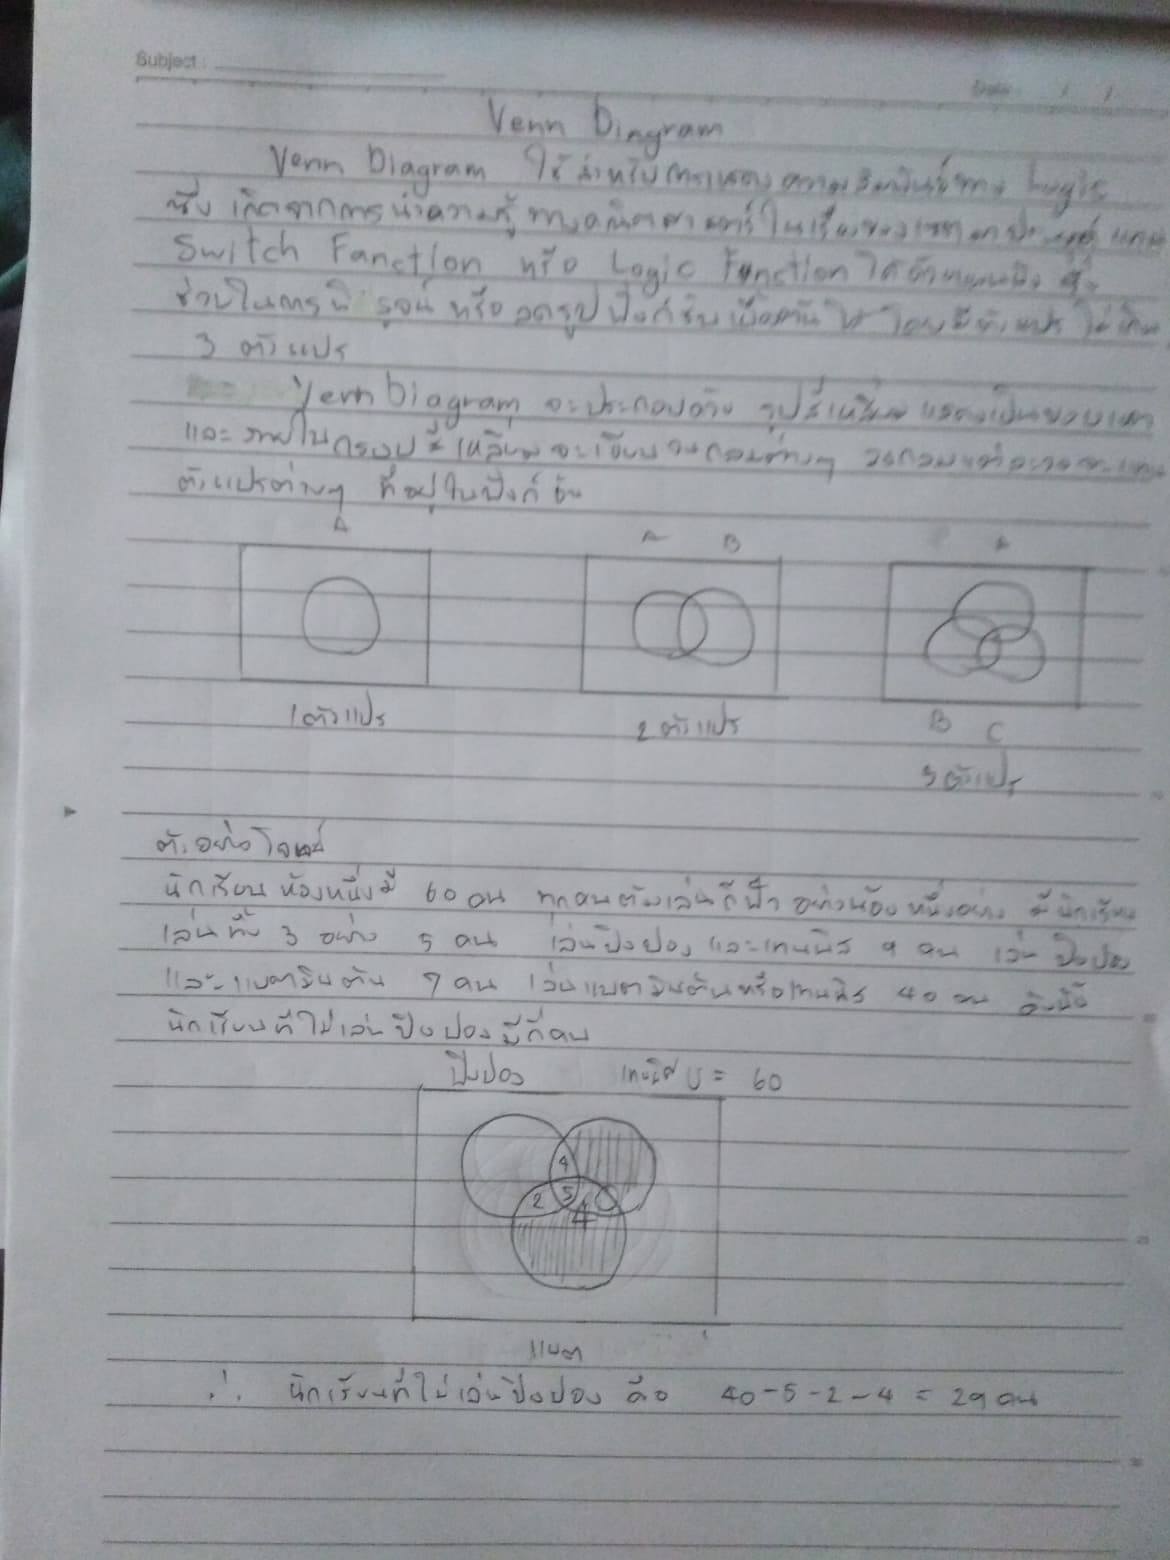 Subject :
Date / /
Venn Diagram
Venn Diagram ใช้สำหรับการแสดงความสัมพันธ์ทาง Logic
ซึ่งเกิดจากการนำความรู้ทางคณิตศาสตร์ในเรื่องของเซต มาประยุกต์ แทน
Switch Fanction หรือ Logic Function ได้
ช่วยในการพิสูจน์ หรือ ลดรูปฟังก์ชันเบื้องต้นได้ โดยมีตัวแปร ไม่เกิน
3 ตัวแปร
Venn Diagram จะประกอบด้วย รูปสี่เหลี่ยม แสดงเป็นขอบเขต
และ ภายในกรอบสี่เหลี่ยม จะเขียนวงกลมต่างๆ วงกลมแต่ละวงจะแทน
ตัวแปรต่างๆ ที่อยู่ในฟังก์ชัน
A
A B
A
1 ตัวแปร
2 ตัวแปร
B C
3 ตัวแปร
ตัวอย่างโจทย์
นักเรียนห้องหนึ่งมี 60 คน ทุกคนต้องเล่นกีฬา อย่างน้อยหนึ่งอย่าง มีนักเรียน
เล่นทั้ง 3 อย่าง 5 คน เล่นปิงปอง และเทนนิส 9 คน เล่น ปิงปอง
และแบตมินตัน 7 คน เล่นแบตมินตันหรือเทนนิส 40 คน ดังนั้น
นักเรียนที่ไม่เล่นปิงปองมีกี่คน
ปิงปอง เทนนิส U = 60
4
2 5
4
แบต
∴ นักเรียนที่ไม่เล่นปิงปอง คือ 40-5-2-4 = 29 คน